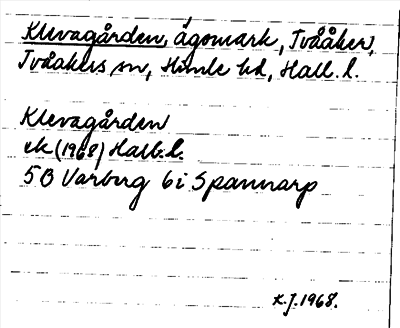 Klevagården, ägomark, Tvååker,
Tvååkers sn, Himle hd, Hall. l.
Klevagården
ek (1968) Hall. l.
5B Varberg 6i Spannarp
K.J. 1968.